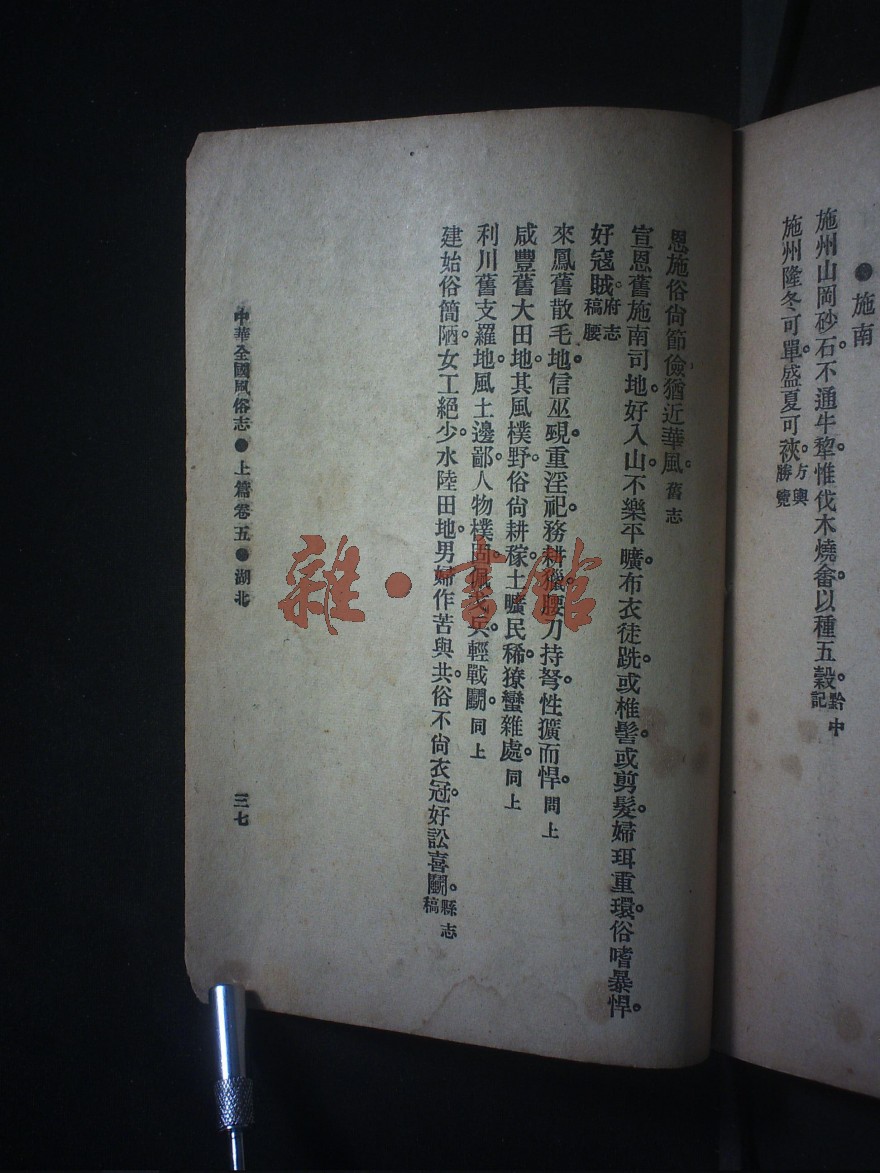 ●施南
施州山岡砂石不通牛犂。惟伐木燒畬。以種五穀。黔中記
施州隆冬可單。盛夏可裌。方輿勝覽
恩施俗尙節儉。猶近華風。舊志
宣恩舊施南司地。好入山。不樂平曠。布衣徒跣。或椎髻。或剪髮。婦珥重環。俗嗜暴悍。
好寇賊。府志稿腰
來鳳舊散毛地。信巫覡。重淫祀。務耕獵。腰刀持弩。性獷而悍。問上
咸豐舊大田地。其風樸野。俗尙耕稼。土曠民稀。獠蠻雜處。同上
利川舊支羅地。風土邊鄙。人物樸固。佩戈兵。輕戰鬭。同上
建始俗簡陋。女工絕少。水陸田地。男婦作苦與共。俗不尙衣冠。好訟喜鬭。縣志稿
中華全國風俗志●上篇卷五●湖北
三七
雜·書館